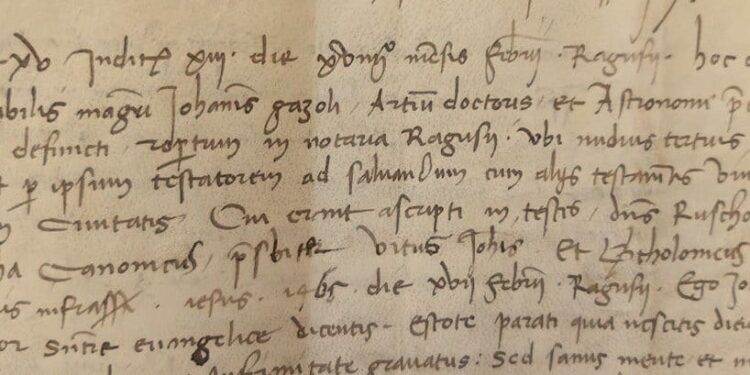 xv Indit xiii · die xviiii° mēsis febrii · Ragusii · hoc
abilis magrī Johanis gazoli, Artiū doctoris, et Astronomi
defuncti, reptum in notaria Ragusii · Ubi nudius tertius
p ipsum testatorem ad saluandum cum alijs testamtis
Ciuitatis, Cui erant ascripti in testis, dns Ruscho
Canonicus, psbiter Vitus Johis Et Bitholomeus
infra · iesus · 1465 die xvii febrii · Ragusii · Ego Jo
sūtie euangelice dicentis · Estote parati quia nescitis
infirmitate grauatus: Sed sanus mente et